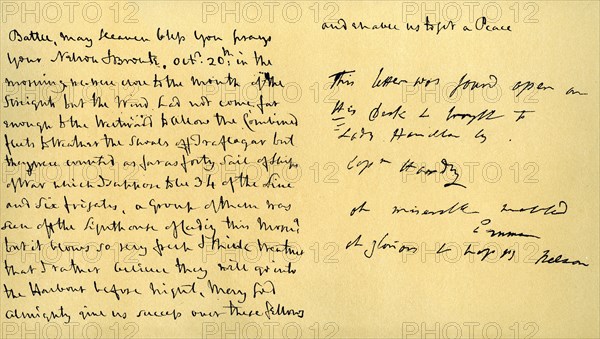 Battle, may Heaven bless you prays
your Nelson & Bronte, Octr. 20th: in the
morning we were close to the mouth of the
Streights but the Wind had not come far
enough to the Westward to allow the Combined
fleets to Weather the Shoals off Traflagar but
they were counted as far as forty Sail of Ships
of War which I suppose to be 34 of the Line
and Six frigates, a Group of them was
seen off the Lighthouse of Cadiz this Morng
but it blows so very fresh & thick weather
that I rather believe they will go into
the Harbour before Night. May God
Almighty give us success over these fellows
and enable us to get a Peace
This letter was found open on
His Desk & brought to
Lady Hamilton by
Capn Hardy
oh miserable wretched
Emma
oh glorious & happy Nelson